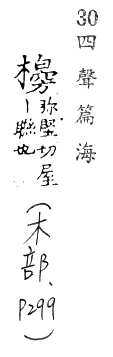 30四聲篇海
櫋弥堅切屋
丨聮也
(木部、P299)